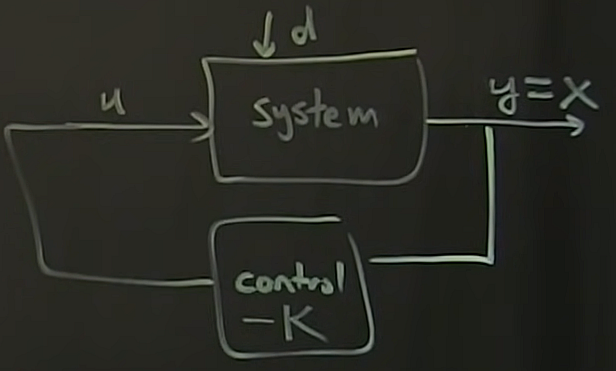 d
u
system
y=x
control
-K